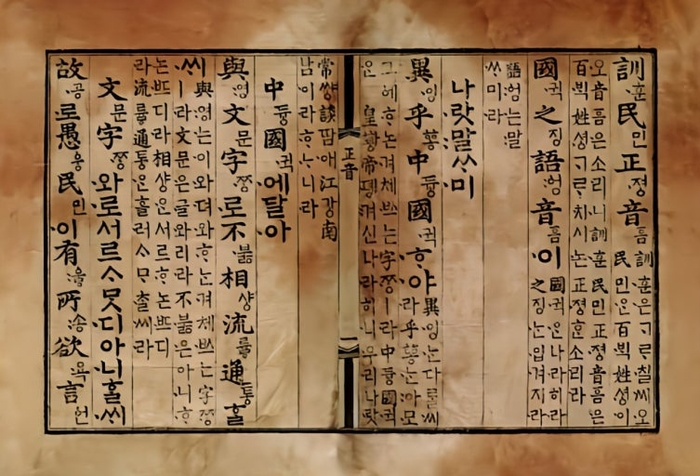 訓훈民민正졍音흠
訓훈은ᄀᆞᄅᆞ칠씨오
民민ᄋᆞᆫ百ᄇᆡᆨ姓셩이
오音흠은소리니訓훈民민正졍音흠은
百ᄇᆡᆨ姓셩ᄀᆞᄅᆞ치시논正졍ᄒᆞᆫ소리라
國귁之징語ᅌᅥᆼ音흠이
國귁ᄋᆞᆫ나라히라
之징ᄂᆞᆫ입겨지라
語ᅌᅥᆼ는말
ᄊᆞ미라
나랏말ᄊᆞ미
異잉乎ᅘᅩᆼ中듕國귁ᄒᆞ야
異잉ᄂᆞᆫ다ᄅᆞᆯ씨
라乎ᅘᅩᆼᄂᆞᆫ아모
그ᅌᅦᄒᆞ논겨체ᄡᅳ는字ᄍᆞᆼㅣ라中듕國귁
ᄋᆞᆫ皇ᅘᅪᆼ帝뎽겨신나라히니우리나랏
正音
常썅談땀애江강南
남이라ᄒᆞᄂᆞ니라
中듕國귁에달아
與영文문字ᄍᆞᆼ로不붏相샹流륭通통ᄒᆞᆯ
씨與영는이와뎌와ᄒᆞ논겨체ᄡᅳ는字ᄍᆞᆼ
ㅣ라文문은글와리라不붏은아니ᄒᆞ
논ᄠᅳ디라相샹ᄋᆞᆫ서르ᄒᆞ논ᄠᅳ디
라流륭通통ᄋᆞᆫ흘러ᄉᆞᄆᆞᄎᆞᆯ씨라
文문字ᄍᆞᆼ와로서르ᄉᆞᄆᆞᆺ디아니ᄒᆞᆯᄊᆡ
故공로愚ᅌᅮᆼ民민이有ᅌᅮᇢ所송欲욕言언